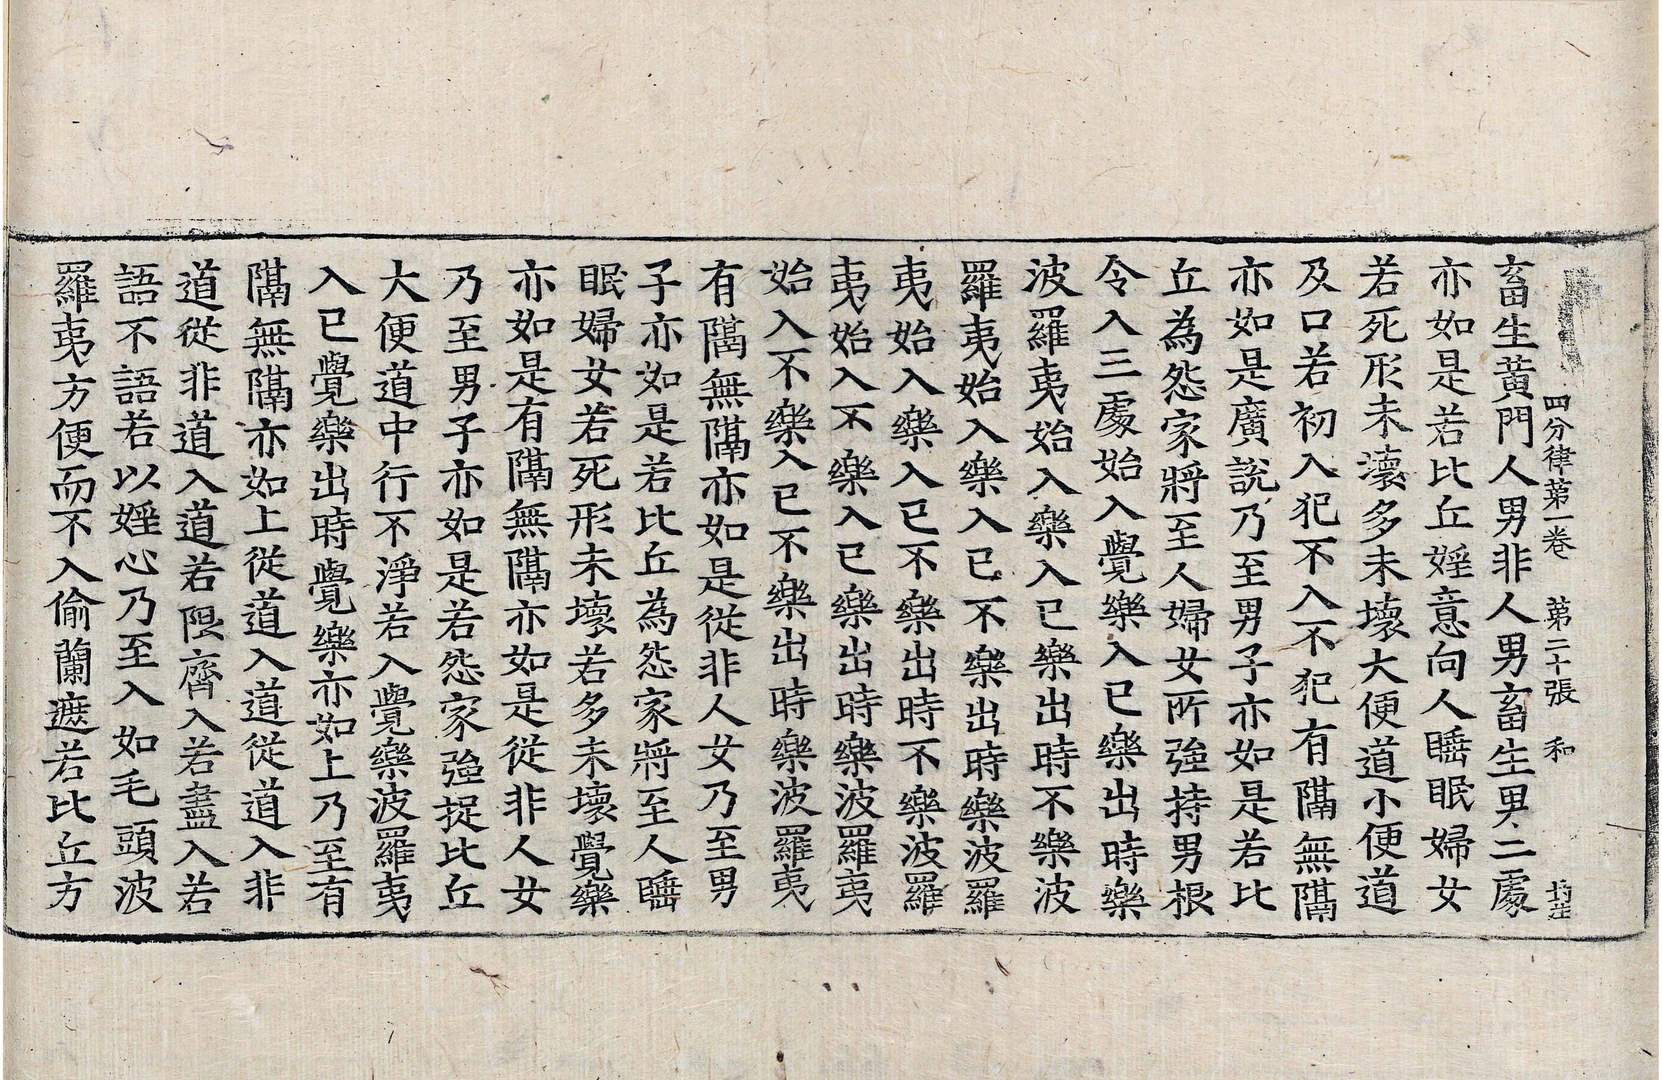 四分律第一卷 第二十張 和
畜生黃門人男非人男畜生男二處
亦如是若比丘婬意向人睡眠婦女
若死形未壞多未壞大便道小便道
及口若初入犯不入不犯有隔無隔
亦如是廣說乃至男子亦如是若比
丘為怨家將至人婦女所強持男根
令入三處始入覺樂入已樂出時樂
波羅夷始入樂入已樂出時不樂波
羅夷始入樂入已不樂出時樂波羅
夷始入樂入已不樂出時不樂波羅
夷始入不樂入已樂出時樂波羅夷
始入不樂入已不樂出時樂波羅夷
有隔無隔亦如是從非人女乃至男
子亦如是若比丘為怨家將至人睡
眠婦女若死形未壞若多未壞覺樂
亦如是有隔無隔亦如是從非人女
乃至男子亦如是若怨家強捉比丘
大便道中行不淨若入覺樂波羅夷
入已覺樂出時覺樂亦如上乃至有
隔無隔亦如上從道入道從道入非
道從非道入道若限齊入若盡入若
語不語若以婬心乃至入如毛頭波
羅夷方便而不入偷蘭遮若比丘方